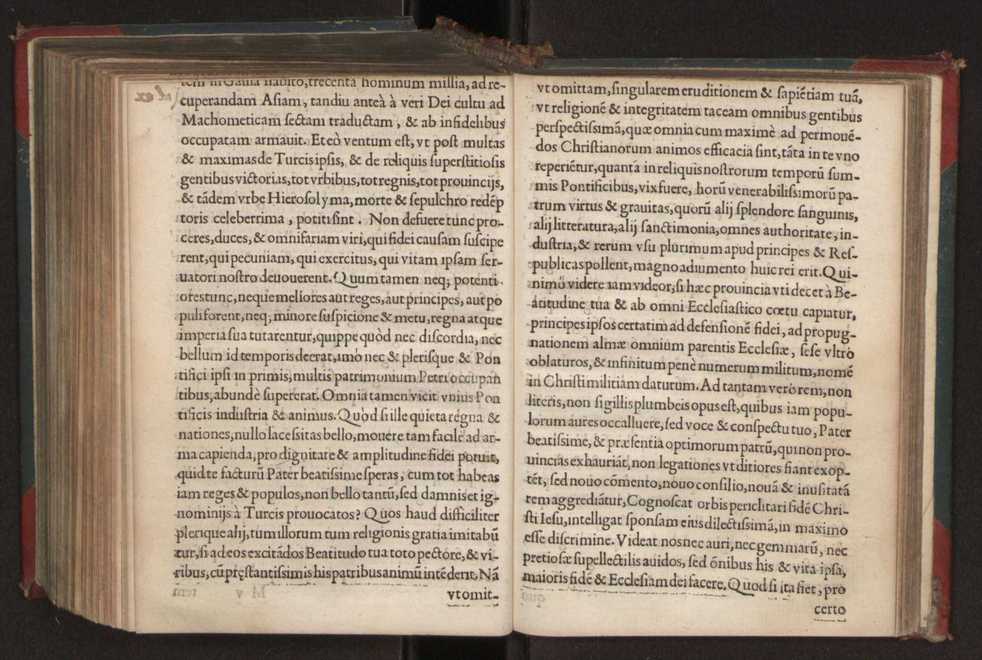 tem in Gallia habito, trecenta hominum millia, ad re-
cuperandam Asiam, tandiu anteà à veri Dei cultu ad
Machometicam sectam traductam, & ab infidelibus
occupatam armauit. Et eò ventum est, vt post multas
& maximas de Turcis ipsis, & de reliquis superstitiosis
gentibus victorias, tot vrbibus, tot regnis, tot prouincijs,
& tãdem vrbe Hierosolyma, morte & sepulchro redẽp
toris celeberrima, potiti sint. Non defuere tunc pro-
ceres, duces, & omnifariam viri, qui fidei causam suscipe
rent, qui pecuniam, qui exercitus, qui vitam ipsam ser-
uatori nostro deuouerent. Quum tamen neq; potenti
ores tunc, neque meliores aut reges, aut principes, aut po
puli forent, neq; minore suspicione & metu, regna atque
imperia sua tutarentur, quippe quòd nec discordia, nec
bellum id temporis deerat, imò nec & plerisque & Pon
tifici ipsi in primis, multis patrimonium Petri occupan
tibus, abundè supererat. Omnia tamen vicit vnius Pon
tificis industria & animus. Quòd si ille quieta regna &
nationes, nullo lacessitas bello, mouere tam facilè ad ar-
ma capienda, pro dignitate & amplitudine fidei potuit,
quid te facturũ Pater beatissime speras, cum tot habeas
iam reges & populos, non bello tantũ, sed damnis et ig-
nominijs à Turcis prouocatos? Quos haud difficiliter
plerique alij, tum illorum tum religionis gratia imitabũ
tur, si ad eos excitãdos Beatitudo tua toto pectore, & vi-
ribus, cũ pręstantissimis his patribus animũ intẽderit. Nã
vt omit-
vt omittam, singularem eruditionem & sapiẽtiam tuã,
vt religionẽ & integritatem taceam omnibus gentibus
perspectissimã, quæ omnia cum maximè ad permouẽ-
dos Christianorum animos efficacia sint, tãta in te vno
reperiẽtur, quanta in reliquis nostrorum temporũ sum-
mis Pontificibus, vix fuere, horũ venerabilissimorũ pa-
trum virtus & grauitas, quorũ alij splendore sanguinis,
alij litteratura, alij sanctimonia, omnes authoritate, in-
dustria, & rerum vsu plurimum apud principes & Res-
publicas pollent, magno adiumento huic rei erit. Qui-
nimò videre iam videor, si hæc prouincia vti decet à Be-
atitudine tua & ab omni Ecclesiastico cœtu capiatur,
principes ipsos certatim ad defensionẽ fidei, ad propug-
nationem almæ omnium parentis Ecclesiæ, sese vltro
oblaturos, & infinitum penè numerum militum, nomẽ
in Christi militiam daturum. Ad tantam verò rem, non
literis, non sigillis plumbeis opus est, quibus iam popu-
lorum aures occalluere, sed voce & conspectu tuo, Pater
beatissime, & præsentia optimorum patrũ, qui non pro-
uincias exhauriãt, non legationes vt ditiores fiant exop-
tẽt, sed nouo cõmento, nouo consilio, nouã & inusitatã
rem aggrediãtur, Cognoscat orbis periclitari fidẽ Chri-
sti Iesu, intelligat sponsam eius dilectissimã, in maximo
esse discrimine. Videat nos nec auri, nec gemmarũ, nec
pretiosæ supellectilis auidos, sed õnibus his & vita ipsa,
maioris fidẽ & Ecclesiam dei facere. Quod si ita fiet, pro
certo